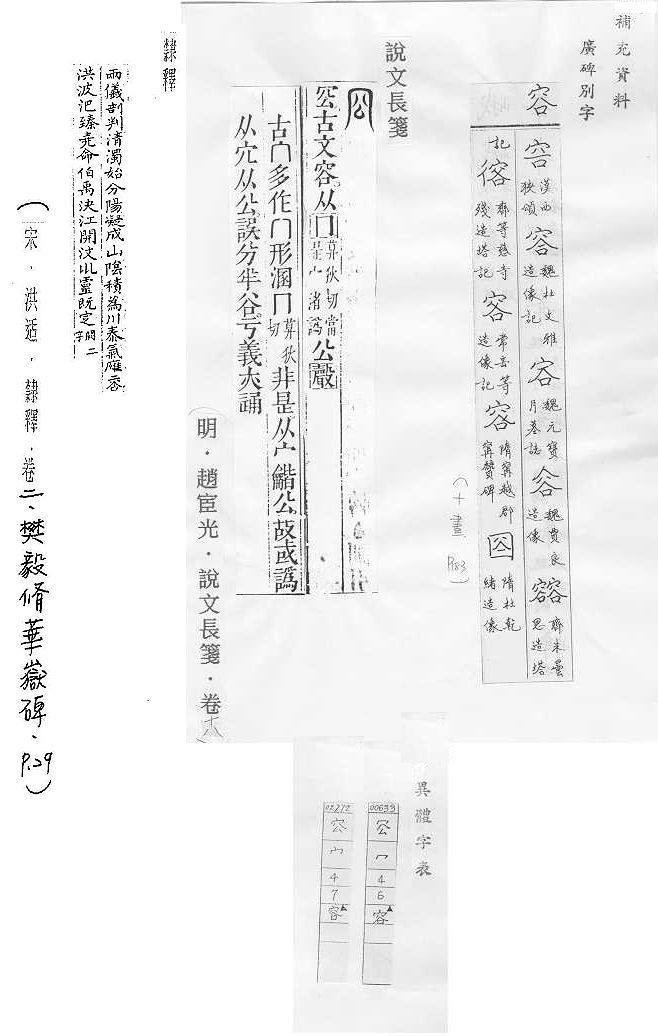 補充資料
廣碑別字
容
漢西狹頌
魏杜文雅造像記
魏元寶月墓誌
魏賈良造像
齊朱曇思造塔
記
齊等慈寺殘造塔記
常岳等造像記
隋甯越郡甯贙碑
隋杜乾緒造像
(十畫 P.183)
說文長箋
㕣古文容从冂莫狄切當是宀渚譌公聲
古冂多作冂形溷冂莫狄切非是从宀諧公故或譌
从穴从公誤分半谷丂義夾誦
(明．趙宧光．說文長箋．卷十八)
隸釋
兩儀剖判清濁始分陽凝成山陰積為川泰氣雁容
洪波汜臻尭命伯禹決江開汶𠀌靈既定闕二字
(宋．洪适．隸釋．卷二、樊毅脩華嶽碑．P.29)
異體字表
00633
冖
4
6
容
02212
宀
4
7
容